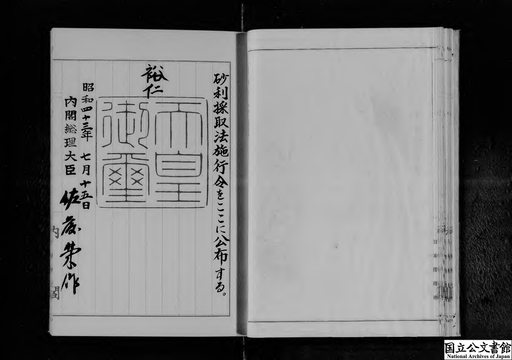 砂利採取法施行令をここに公布する。
裕仁
天皇御璽
昭和四十三年七月十五日
内閣総理大臣 佐藤榮作
内閣
国立公文書館
National Archives of Japan